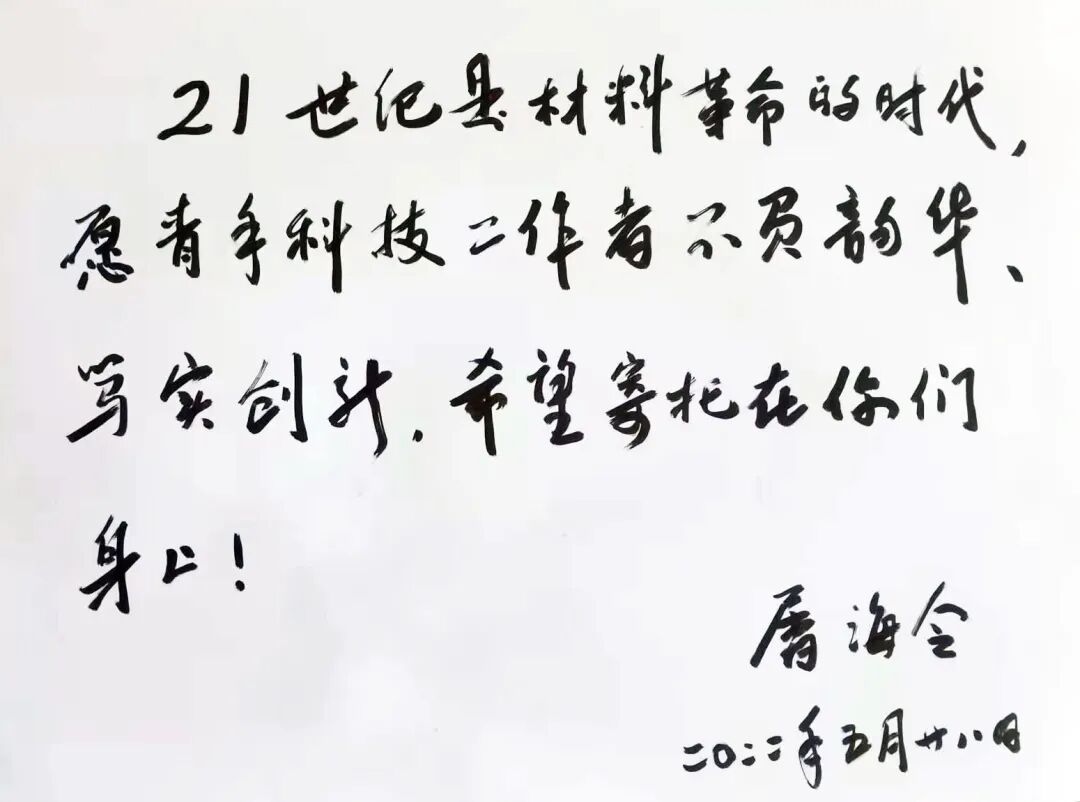 21世纪是材料革命的时代，
愿青年科技工作者不负韵华、
笃实创新，希望寄托在你们
身上！
屠海令
二〇二二年五月廿八日